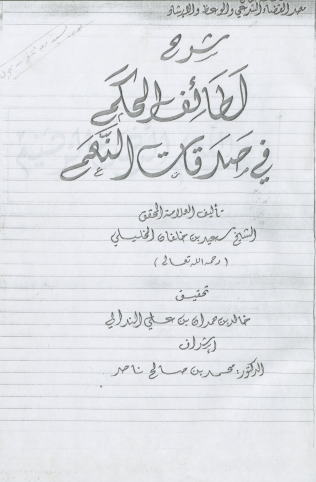 معهد القضاء الشرعي والوعظ والإرشاد
شرح
لطائف الحكم
في صدقات النعم
تأليف العلامة المحقق
الشيخ سعيد بن خلفان الخليلي
(رحمه الله تعالى)
تحقيق
خالد بن حمدان بن علي
إشراف
الدكتور: محمد بن صالح ناصر